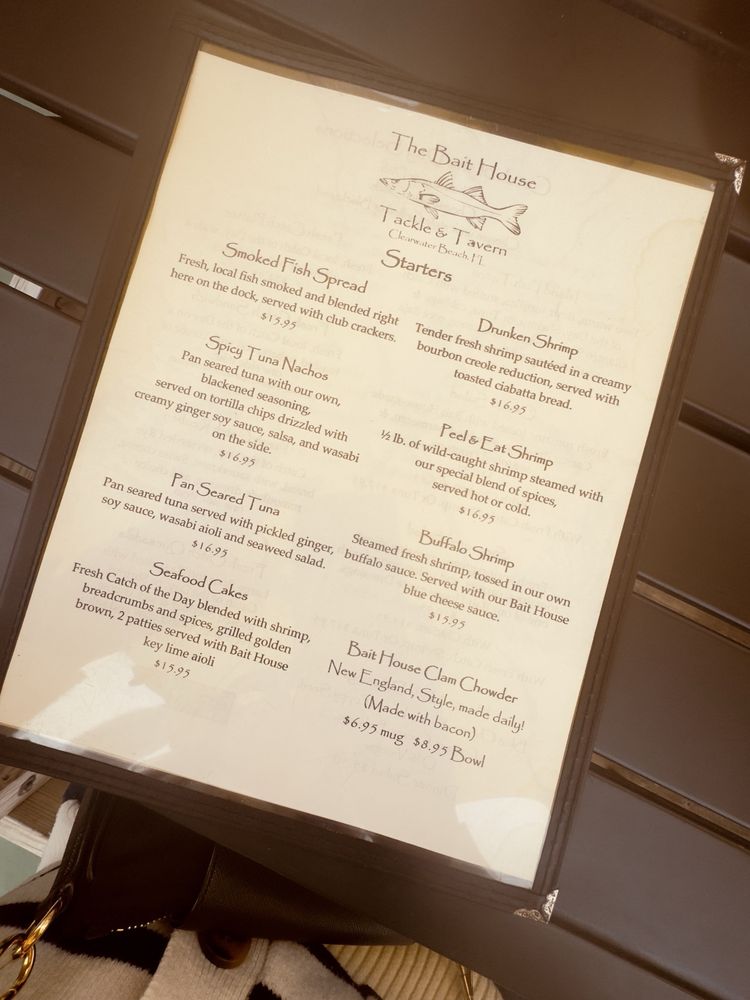 The Bait House
Tackle & Tavern
Clearwater Beach, FL
Starters
Smoked Fish Spread
Fresh, local fish smoked and blended right
here on the dock, served with club crackers.
$15.95
Spicy Tuna Nachos
Pan seared tuna with our own,
blackened seasoning,
served on tortilla chips drizzled with
creamy ginger soy sauce, salsa, and wasabi
on the side.
$16.95
Pan Seared Tuna
Pan seared tuna served with pickled ginger,
soy sauce, wasabi aioli and seaweed salad.
$16.95
Seafood Cakes
Fresh Catch of the Day blended with shrimp,
breadcrumbs and spices, grilled golden
brown, 2 patties served with Bait House
key lime aioli
$15.95
Drunken Shrimp
Tender fresh shrimp sautéed in a creamy
bourbon creole reduction, served with
toasted ciabatta bread.
$16.95
Peel & Eat Shrimp
½ lb. of wild-caught shrimp steamed with
our special blend of spices,
served hot or cold.
$16.95
Buffalo Shrimp
Steamed fresh shrimp, tossed in our own
buffalo sauce. Served with our Bait House
blue cheese sauce.
$15.95
Bait House Clam Chowder
New England, Style, made daily!
(Made with bacon)
$6.95 mug $8.95 Bowl